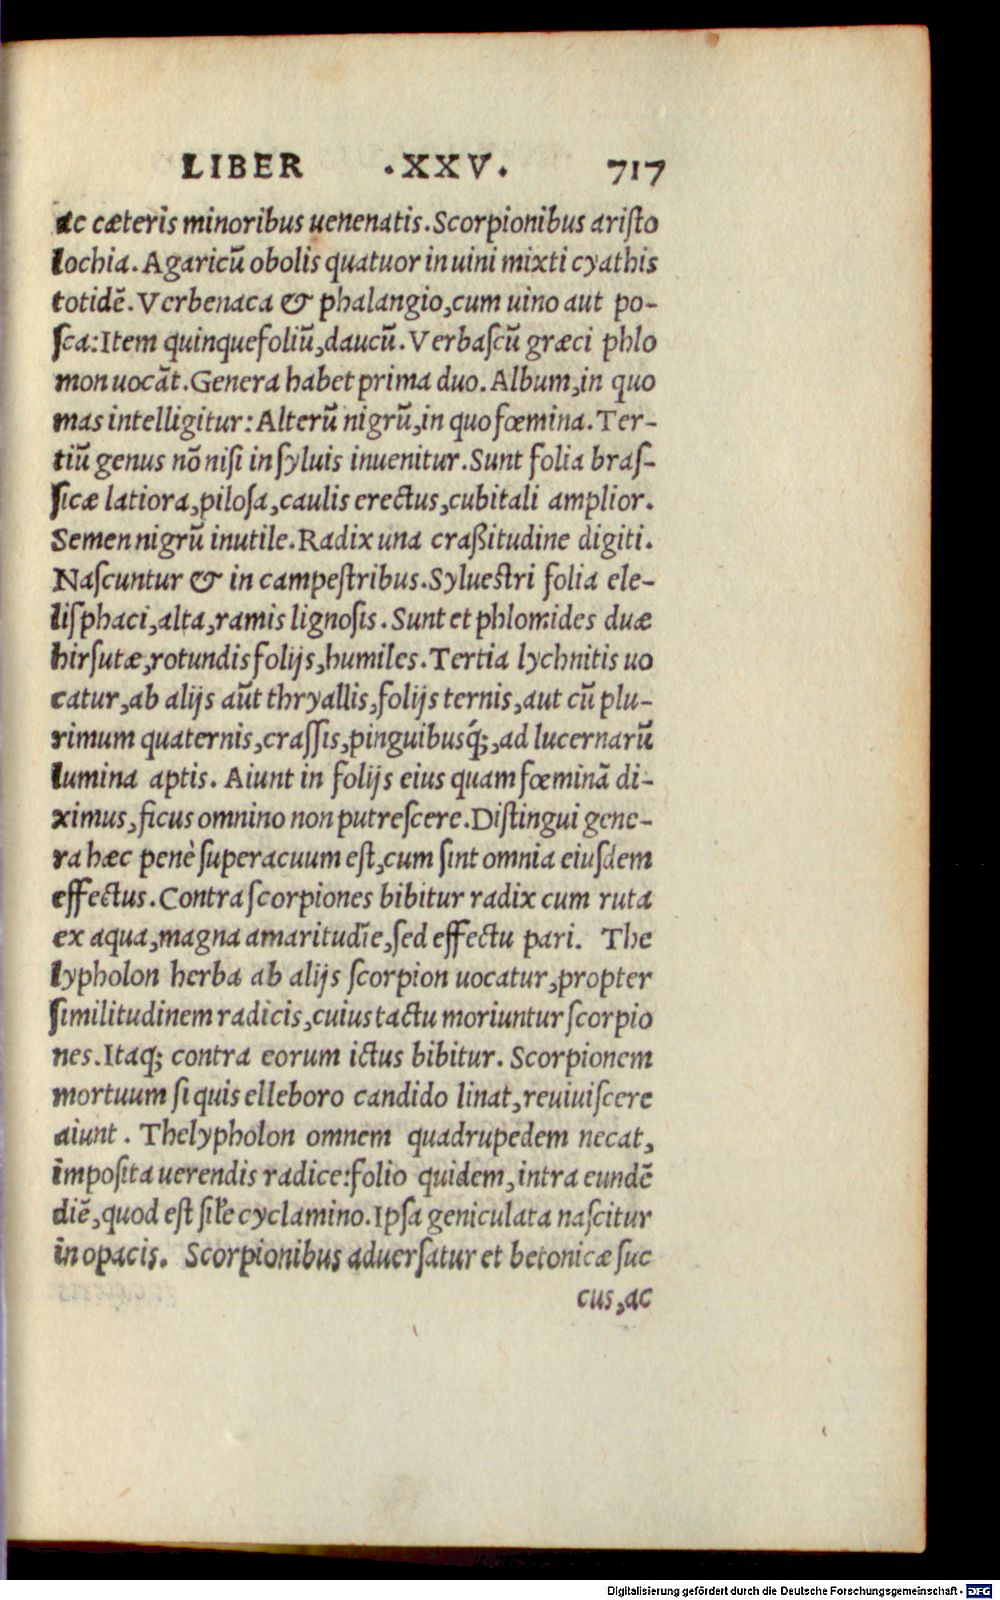 LIBER .XXV. 717
ac cæteris minoribus uenenatis. Scorpionibus aristo
lochia. Agaricū obolis quatuor in uini mixti cyathis
totidē. Verbenaca & phalangio, cum uino aut po-
sca: Item quinquefoliū, daucū. Verbascū græci phlo
mon uocāt. Genera habet prima duo. Album, in quo
mas intelligitur: Alterū nigrū, in quo fœmina. Ter-
tiū genus nō nisi in syluis inuenitur. Sunt folia bras-
sicæ latiora, pilosa, caulis erectus, cubitali amplior.
Semen nigrū inutile. Radix una craßitudine digiti.
Nascuntur & in campestribus. Syluestri folia ele-
lisphaci, alta, ramis lignosis. Sunt et phlomides duæ
hirsutæ, rotundis folijs, humiles. Tertia lychnitis uo
catur, ab alijs aūt thryallis, folijs ternis, aut cū plu-
rimum quaternis, crassis, pinguibusq́;, ad lucernarū
lumina aptis. Aiunt in folijs eius quam fœminā di-
ximus, ficus omnino non putrescere. Distingui gene-
ra hæc penè superacuum est, cum sint omnia eiusdem
effectus. Contra scorpiones bibitur radix cum ruta
ex aqua, magna amaritudīe, sed effectu pari. The
lypholon herba ab alijs scorpion uocatur, propter
similitudinem radicis, cuius tactu moriuntur scorpio
nes. Itaq; contra eorum ictus bibitur. Scorpionem
mortuum si quis elleboro candido linat, reuiuiscere
aiunt. Thelypholon omnem quadrupedem necat,
imposita uerendis radice: folio quidem, intra eundē
diē, quod est sile cyclamino. Ipsa geniculata nascitur
in opacis. Scorpionibus aduersatur et betonicæ suc
cus, ac
Digitalisierung gefördert durch die Deutsche Forschungsgemeinschaft - DFG